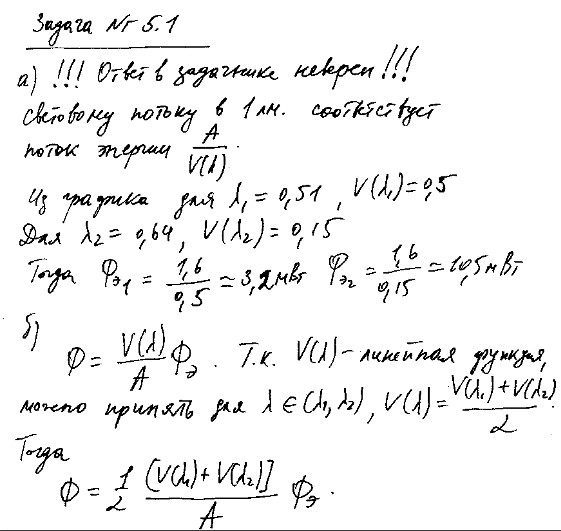 Задача № 5.1
а) !!! Ответ в задачнике неверен !!!
Световому потоку в 1 лм. соответствует
поток энергии A/V(λ).
Из графика для λ₁ = 0,51, V(λ₁) = 0,5
Для λ₂ = 0,64, V(λ₂) = 0,15
Тогда Φэ₁ = 1,6/0,5 ≃ 3,2 мВт Φэ₂ = 1,6/0,15 ≃ 10,5 мВт
б)
Φ = V(λ)/A Φэ. Т.к. V(λ) – линейная функция,
можно принять для λ ∈ (λ₁, λ₂), V(λ) = V(λ₁) + V(λ₂)/2.
Тогда
Φ = 1/2 [V(λ₁) + V(λ₂)]/A Φэ.